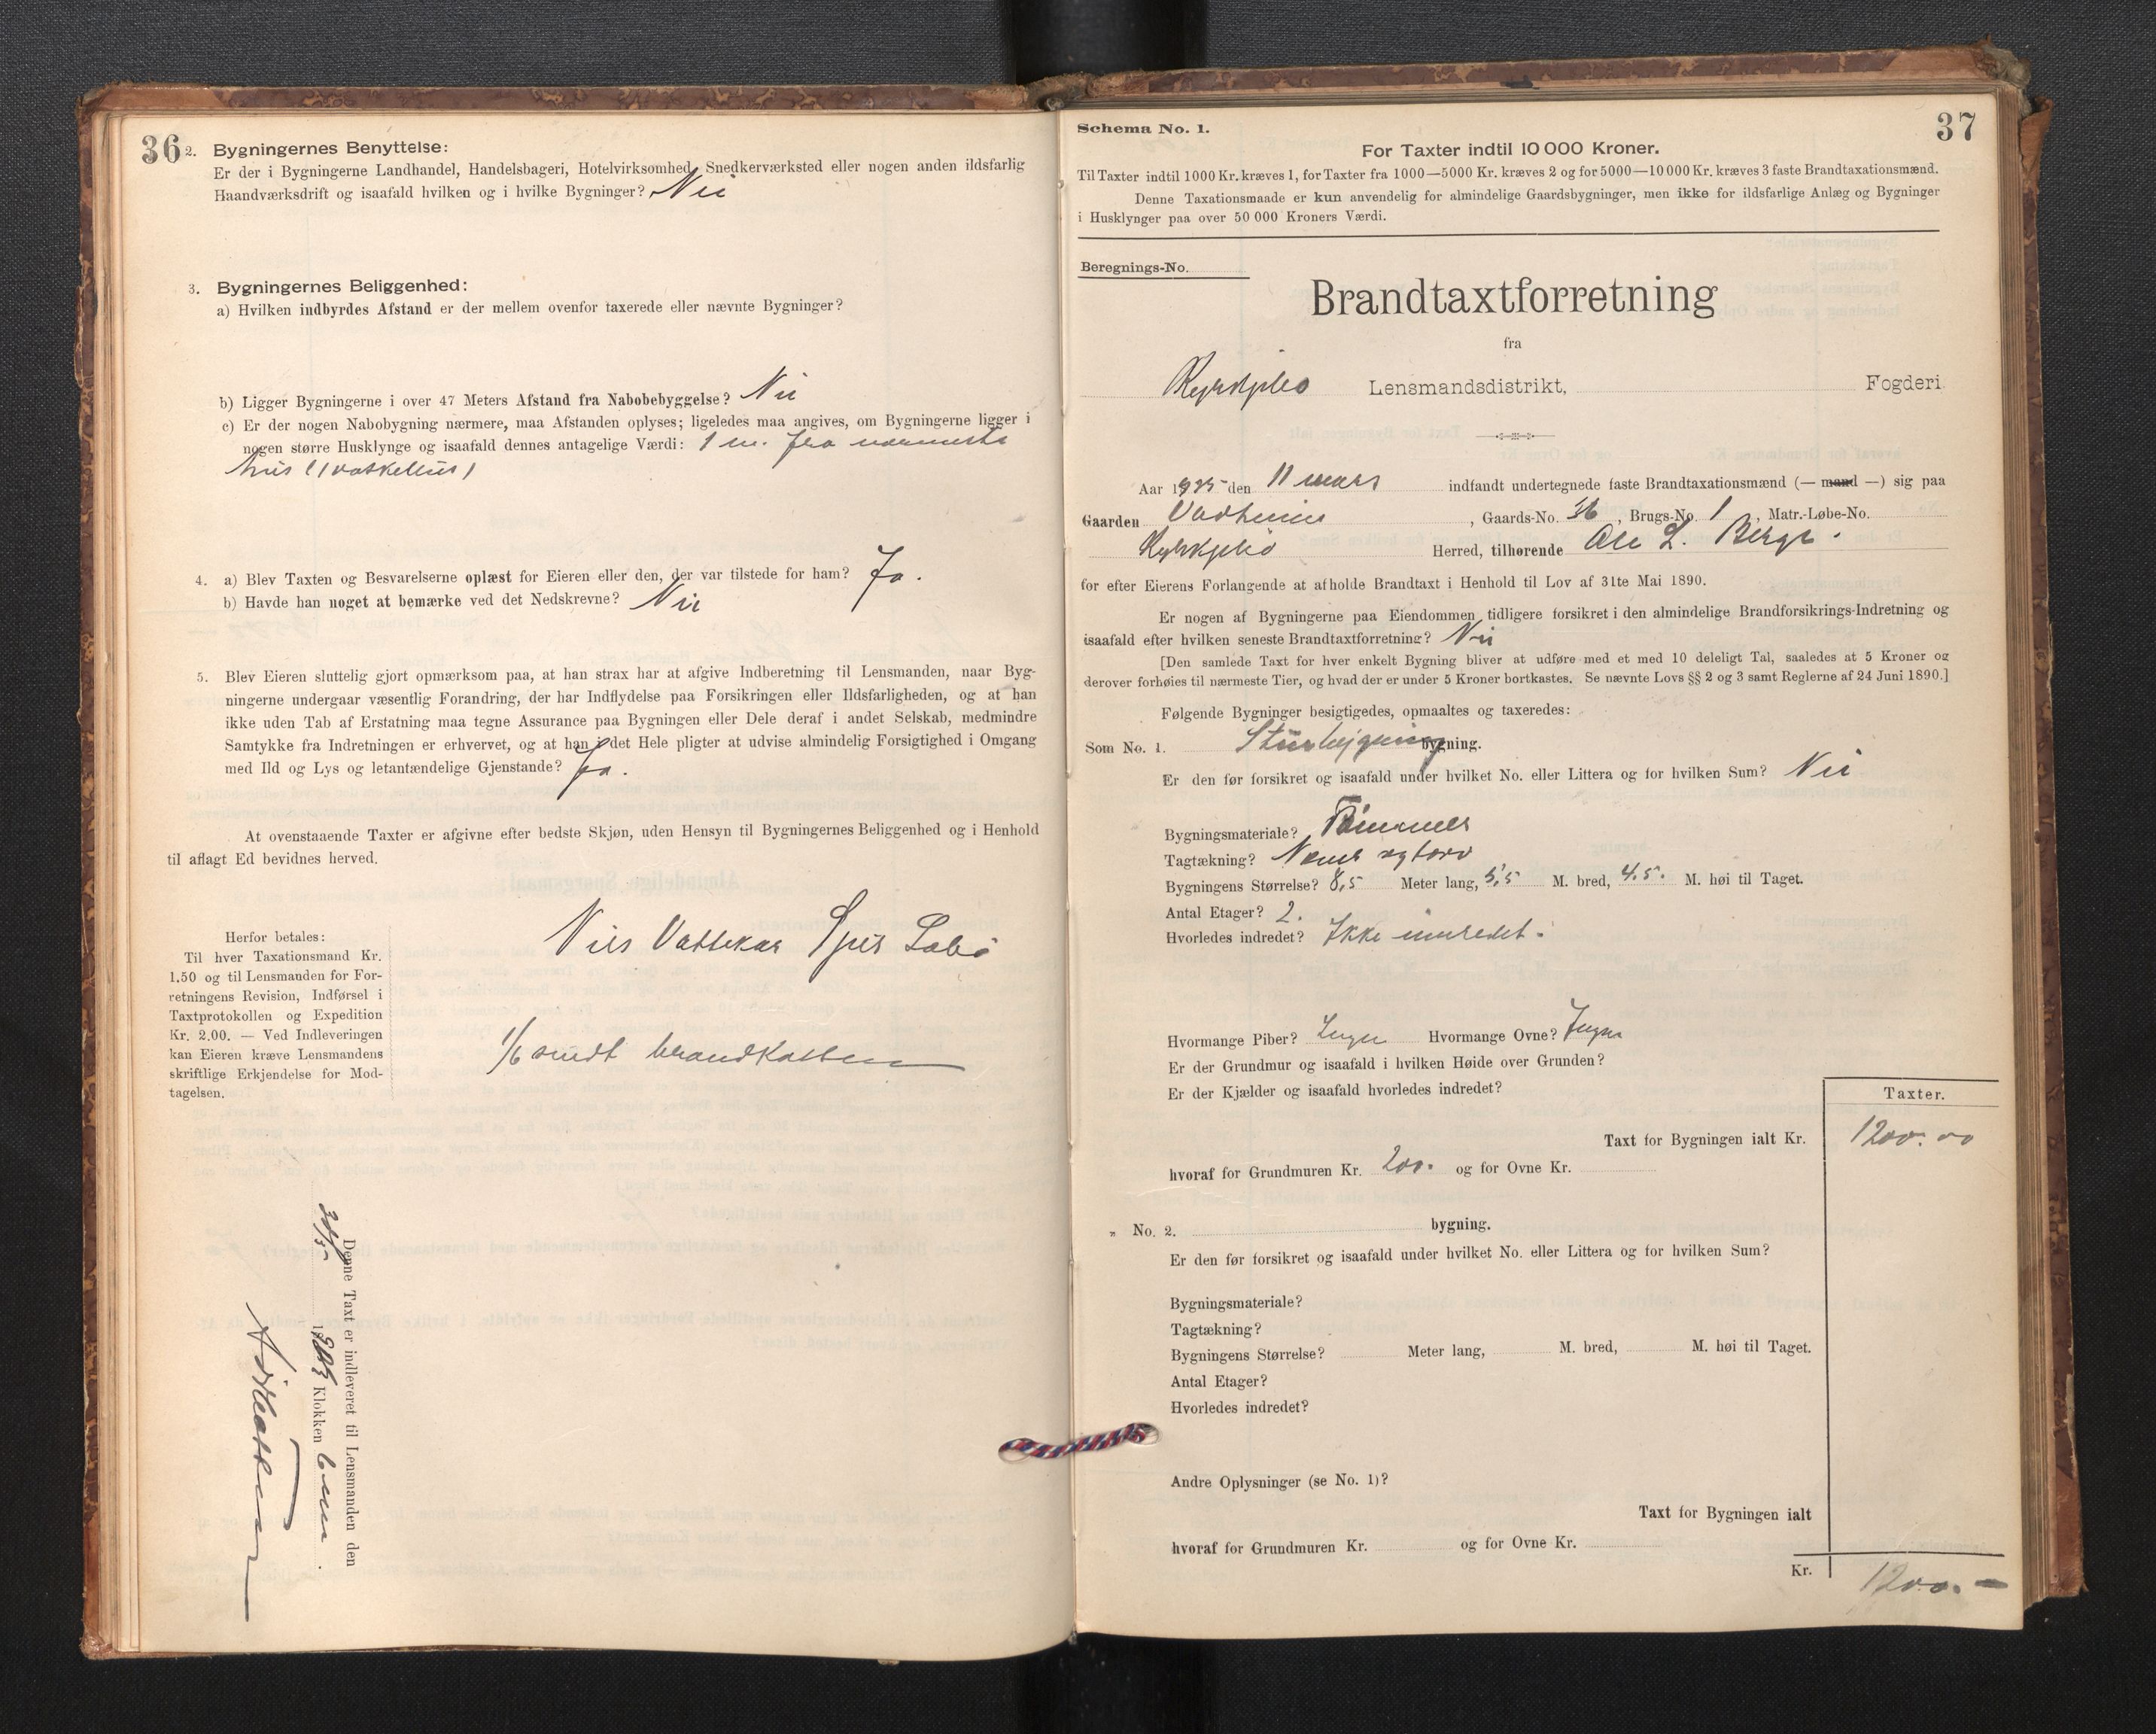 36
2. Bygningernes Benyttelse:
Er der i Bygningerne Landhandel, Handelsbageri, Hotelvirksomhed, Snedkerværksted eller nogen anden ildsfarlig
Haandværksdrift og isaafald hvilken og i hvilke Bygninger? Nei
3. Bygningernes Beliggenhed:
a) Hvilken indbyrdes Afstand er der mellem ovenfor taxerede eller nævnte Bygninger?
b) Ligger Bygningerne i over 47 Meters Afstand fra Nabobebyggelse? Nei
c) Er der nogen Nabobygning nærmere, maa Afstanden oplyses; ligeledes maa angives, om Bygningerne ligger i
nogen større Husklynge og isaafald dennes antagelige Værdi: 1 m. fra nærmeste
hus (Vaskehus)
4. a) Blev Taxten og Besvarelserne oplæst for Eieren eller den, der var tilstede for ham? Ja.
b) Havde han noget at bemærke ved det Nedskrevne? Nei
5. Blev Eieren sluttelig gjort opmærksom paa, at han strax har at afgive Indberetning til Lensmanden, naar Byg-
ningerne undergaar væsentlig Forandring, der har Indflydelse paa Forsikringen eller Ildsfarligheden, og at han
ikke uden Tab af Erstatning maa tegne Assurance paa Bygningen eller Dele deraf i andet Selskab, medmindre
Samtykke fra Indretningen er erhvervet, og at han i det Hele pligter at udvise almindelig Forsigtighed i Omgang
med Ild og Lys og letantændelige Gjenstande? Ja.
At ovenstaaende Taxter er afgivne efter bedste Skjøn, uden Hensyn til Bygningernes Beliggenhed og i Henhold
til aflagt Ed bevidnes herved.
Nils Vattekar
Herfor betales:
Til hver Taxationsmand Kr.
1.50 og til Lensmanden for For-
retningens Revision, Indførsel i
Taxtprotokollen og Expedition
Kr. 2.00. — Ved Indleveringen
kan Eieren kræve Lensmandens
skriftlige Erkjendelse for Mod-
tagelsen.
1/6 sendt brandkassen
Denne Taxt er indleveret til Lensmanden den
Klokken 6 em.
37
Schema No. 1.
For Taxter indtil 10 000 Kroner.
Til Taxter indtil 1000 Kr. kræves 1, for Taxter fra 1000—5000 Kr. kræves 2 og for 5000—10 000 Kr. kræves 3 faste Brandtaxationsmænd.
Denne Taxationsmaade er kun anvendelig for almindelige Gaardsbygninger, men ikke for ildsfarlige Anlæg og Bygninger
i Husklynger paa over 50 000 Kroners Værdi.
Beregnings-No.
Brandtaxtforretning
fra
Kyrkjebø Lensmandsdistrikt, Fogderi
Aar 1925 den 11 mars indfandt undertegnede faste Brandtaxationsmænd (— mand —) sig paa
Gaarden Vadheim, Gaards-No. 36, Brugs-No. 1, Matr.-Løbe-No.
Kyrkjebø Herred, tilhørende Ole L. Berge.
for efter Eierens Forlangende at afholde Brandtaxt i Henhold til Lov af 31te Mai 1890.
Er nogen af Bygningerne paa Eiendommen tidligere forsikret i den almindelige Brandforsikrings-Indretning og
isaafald efter hvilken seneste Brandtaxtforretning? Nei
[Den samlede Taxt for hver enkelt Bygning bliver at udføre med et med 10 deleligt Tal, saaledes at 5 Kroner og
derover forhøies til nærmeste Tier, og hvad der er under 5 Kroner bortkastes. Se nævnte Lovs §§ 2 og 3 samt Reglerne af 24 Juni 1890.]
Følgende Bygninger besigtigedes, opmaaltes og taxeredes:
Som No. 1. bygning.
Er den før forsikret og isaafald under hvilket No. eller Littera og for hvilken Sum? Nei
Bygningsmateriale? Tømmer
Tagtækning? Næver og torv
Bygningens Størrelse? 8,5 Meter lang, 5,5 M. bred, 4.5. M. høi til Taget.
Antal Etager? 2.
Hvorledes indredet? Ikke innredet.
Hvormange Piber? Ingen Hvormange Ovne? Ingen
Er der Grundmur og isaafald i hvilken Høide over Grunden?
Er der Kjælder og isaafald hvorledes indredet?
Taxter.
Taxt for Bygningen ialt Kr. 1200.00
hvoraf for Grundmuren Kr. 200. og for Ovne Kr.
„ No. 2. bygning.
Er den før forsikret og isaafald under hvilket No. eller Littera og for hvilken Sum?
Bygningsmateriale?
Tagtækning?
Bygningens Størrelse? Meter lang, M. bred, M. høi til Taget.
Antal Etager?
Hvorledes indredet?
Andre Oplysninger (se No. 1)?
Taxt for Bygningen ialt
hvoraf for Grundmuren Kr. og for Ovne Kr.
Kr. 1200.-